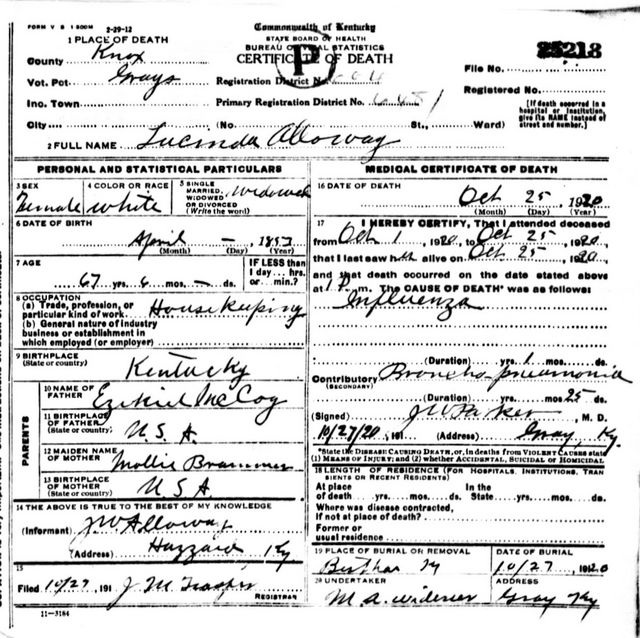 FORM V S 1 500M 2-29-12
Commonwealth of Kentucky
STATE BOARD OF HEALTH
BUREAU OF VITAL STATISTICS
CERTIFICATE OF DEATH
P
1 PLACE OF DEATH
County Knox
Vot. Pct Grays
Inc. Town
City (No. St., Ward)
Registration District No.
Primary Registration District No.
25213
File No.
Registered No.
[If death occurred in a hospital or institution, give its NAME instead of street and number.]
2 FULL NAME Lucinda Alloway
PERSONAL AND STATISTICAL PARTICULARS
3 SEX Female
4 COLOR OR RACE white
5 SINGLE, MARRIED, WIDOWED OR DIVORCED (Write the word) widowed
6 DATE OF BIRTH
April – , 1853
(Month) (Day) (Year)
7 AGE
67 yrs. 6 mos. – ds.
IF LESS than 1 day ... hrs. or ... min.?
8 OCCUPATION
(a) Trade, profession, or particular kind of work Housekeeping
(b) General nature of industry business or establishment in which employed (or employer)
9 BIRTHPLACE
(State or country) Kentucky
PARENTS
10 NAME OF FATHER Ezikiel McCoy
11 BIRTHPLACE OF FATHER (State or country) U.S.A.
12 MAIDEN NAME OF MOTHER Mollie Brammer
13 BIRTHPLACE OF MOTHER (State or country) U S A
14 THE ABOVE IS TRUE TO THE BEST OF MY KNOWLEDGE
(Informant) J W Alloway
(Address) Hazzard, Ky
15
Filed 10/27, 191 J. M.
REGISTRAR
11-3184
MEDICAL CERTIFICATE OF DEATH
16 DATE OF DEATH
Oct 25, 1920
(Month) (Day) (Year)
17 I HEREBY CERTIFY, That I attended deceased
from Oct 1, 1920, to Oct 25, 1920,
that I last saw h alive on Oct 25, 1920,
and that death occurred on the date stated above
at 1 P. m. The CAUSE OF DEATH* was as follows:
Influenza
(Duration) yrs. 1 mos. ds.
Contributory Broncho-pneumonia
(SECONDARY)
(Duration) yrs. mos. 25 ds.
(Signed) J W Parker, M. D.
10/27/20, 191 (Address) Gray, Ky.
*State the DISEASE CAUSING DEATH, or, in deaths from VIOLENT CAUSES state (1) MEANS OF INJURY; and (2) whether ACCIDENTAL, SUICIDAL or HOMICIDAL
18 LENGTH OF RESIDENCE (FOR HOSPITALS, INSTITUTIONS, TRANSIENTS OR RECENT RESIDENTS)
At place of death yrs. mos. ds. In the State yrs. mos. ds.
Where was disease contracted, if not at place of death?
Former or usual residence
19 PLACE OF BURIAL OR REMOVAL Ky
DATE OF BURIAL 10/27, 1920
20 UNDERTAKER M. A. Widener
ADDRESS Gray Ky